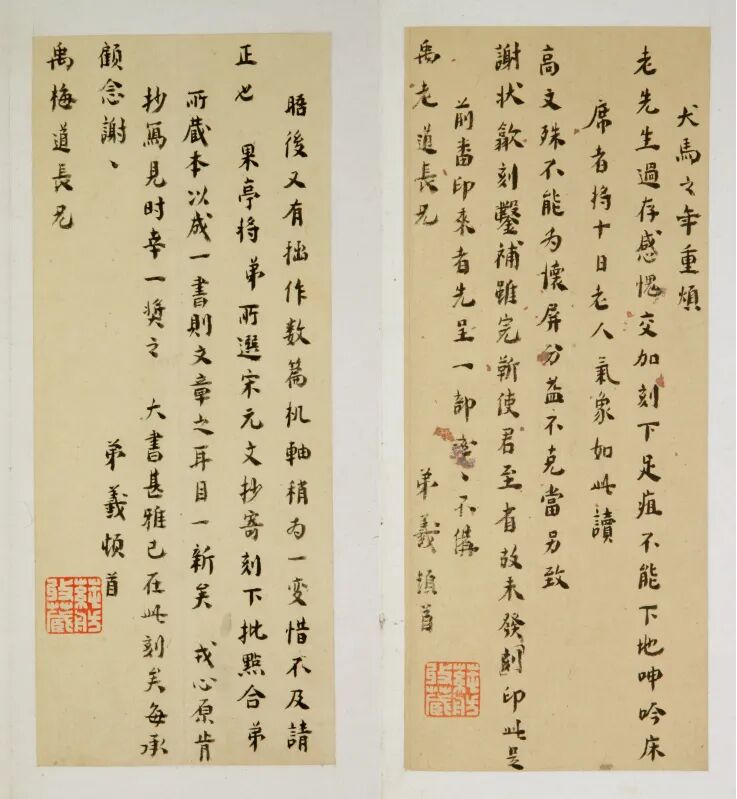 犬馬之年重煩
老先生過存感愧交加刻下足疽不能下地呻吟床
席者将十日老人氣象如此讀
高文殊不能為懷屏分益不克當另致
謝状歙刻鑿補雖完靳使君至省故未發刻印此是
前番印來者先呈一部 不備
禹老道長兄
弟羲頓首
晤後又有拙作数篇机軸稍為一变惜不及請
正也 果亭将弟所選宋元文抄寄刻下批點合弟
所蔵本以成一書則文章之耳目一新矣 戎心原肯
抄寫見时幸一奖之 大書甚雅已在此刻矣每承
顧念謝〻
禹梅道長兄
弟羲頓首